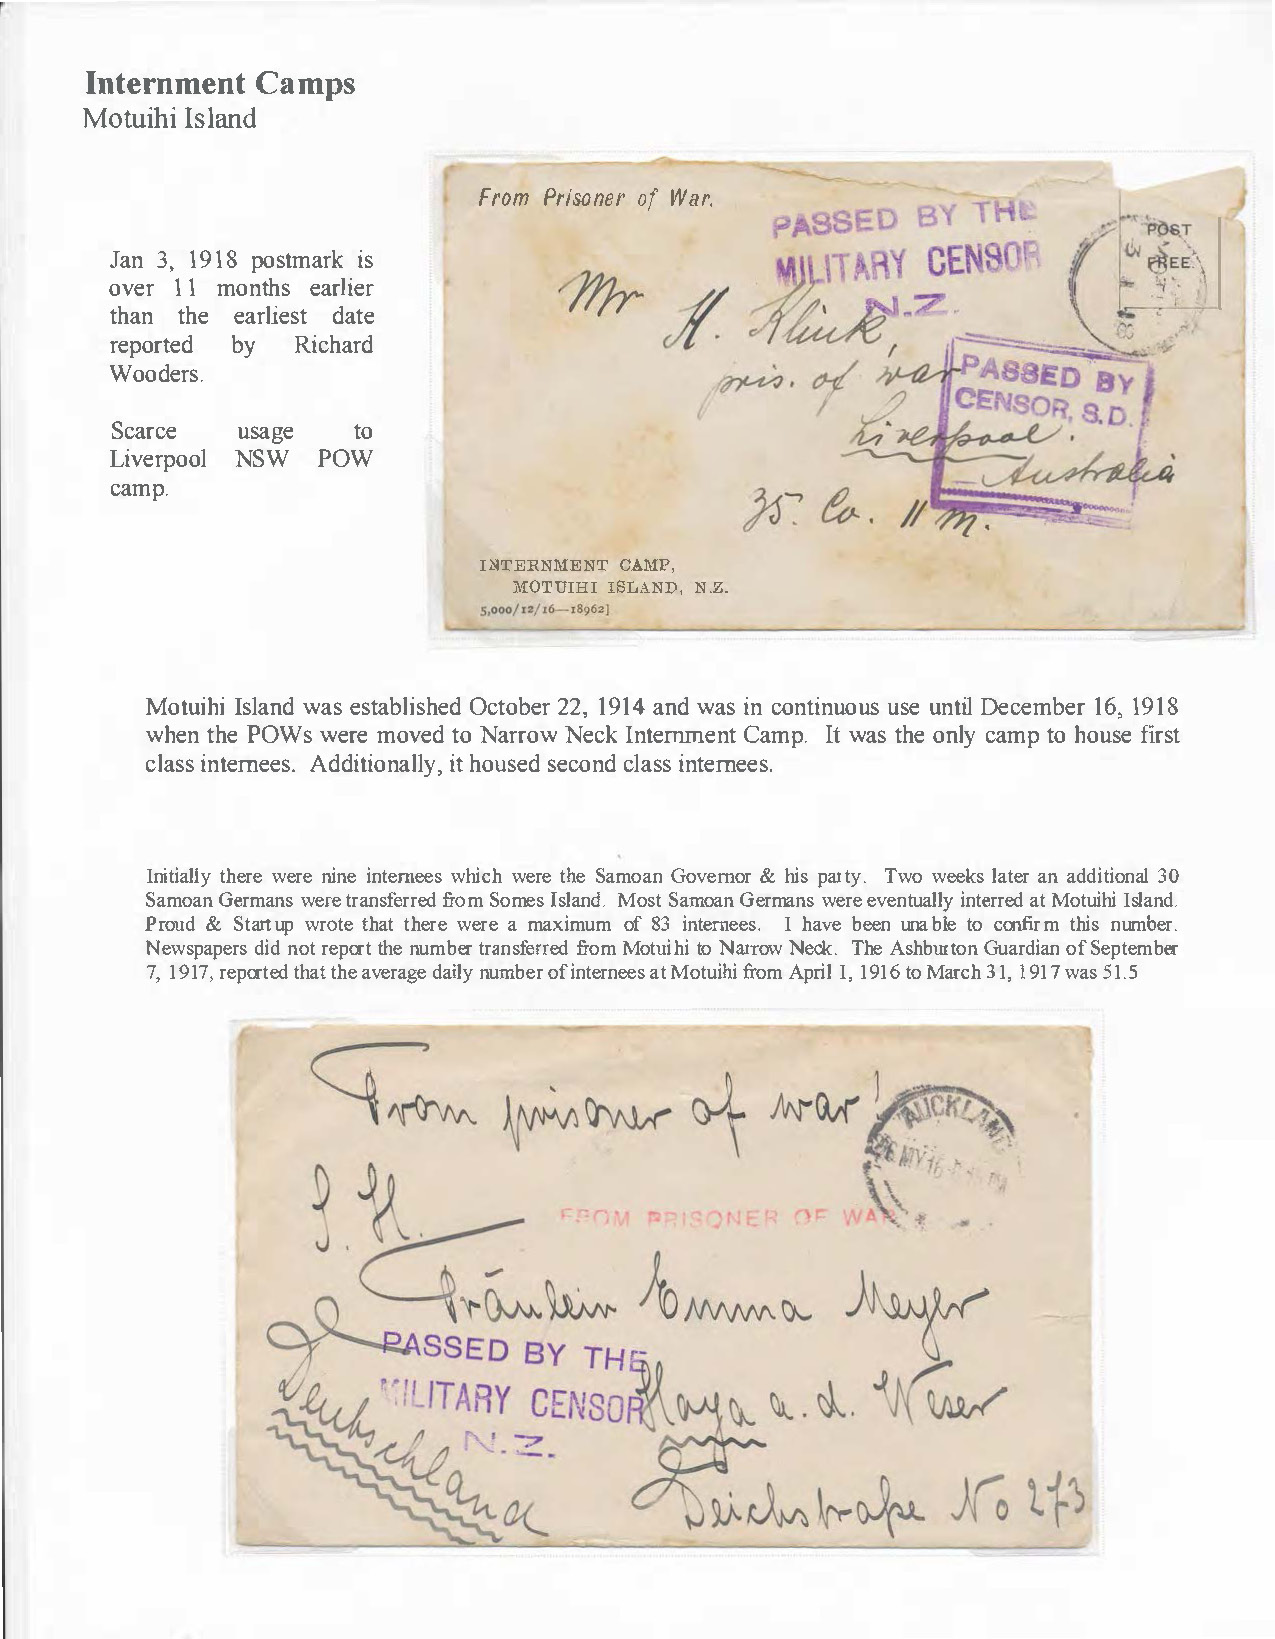 Internment Camps
Motuihi Island
Jan 3, 1918 postmark is
over 11 months earlier
than the earliest date
reported by Richard
Wooders.
Scarce usage to
Liverpool NSW POW
camp.
From Prisoner of War.
PASSED BY THE
MILITARY CENSOR
N.Z.
POST
FREE.
Mr H. Klink,
pris. of war
PASSED BY
CENSOR, S.D.
Liverpool.
Australia
35. Co. 11 M.
INTERNMENT CAMP,
MOTUIHI ISLAND, N.Z.
5,000/12/16—18962]
Motuihi Island was established October 22, 1914 and was in continuous use until December 16, 1918
when the POWs were moved to Narrow Neck Internment Camp. It was the only camp to house first
class internees. Additionally, it housed second class internees.
Initially there were nine internees which were the Samoan Governor & his party. Two weeks later an additional 30
Samoan Germans were transferred from Somes Island. Most Samoan Germans were eventually interred at Motuihi Island.
Proud & Startup wrote that there were a maximum of 83 internees. I have been unable to confirm this number.
Newspapers did not report the number transferred from Motuihi to Narrow Neck. The Ashburton Guardian of September
7, 1917, reported that the average daily number of internees at Motuihi from April 1, 1916 to March 31, 1917 was 51.5
From prisoner of war!
AUCKLAND
26 MY 16
S. H.
FROM PRISONER OF WAR
Fräulein Emma Meyer
PASSED BY THE
MILITARY CENSOR
N.Z.
Hoya a. d. Weser
Deutschland
Deichstraße No 273